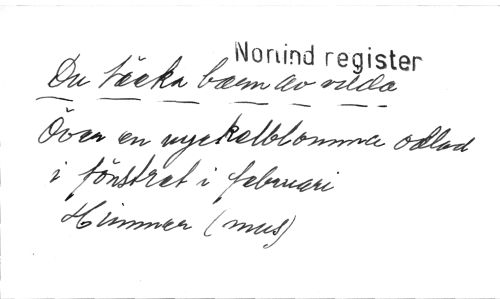 Norlind register
Du täcka barn av
Över en nyckelblomma odlad
i fönstret i februari
Himmer (mus)